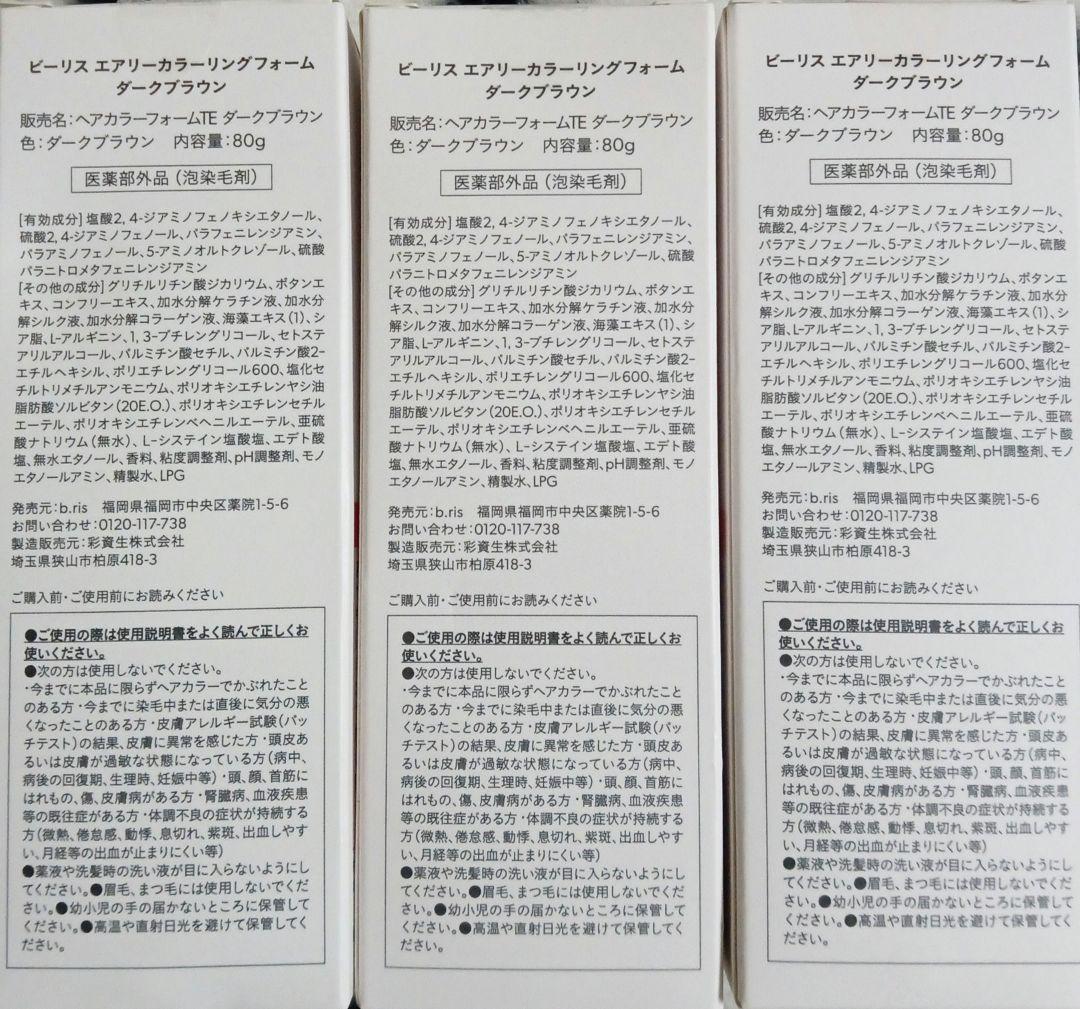 ビーリス エアリーカラーリングフォーム
ダークブラウン
販売名:ヘアカラーフォームTE ダークブラウン
色:ダークブラウン 内容量:80g
医薬部外品(泡染毛剤)
[有効成分] 塩酸2, 4-ジアミノフェノキシエタノール、
硫酸2, 4-ジアミノフェノール、パラフェニレンジアミン、
パラアミノフェノール、5-アミノオルトクレゾール、硫酸
パラニトロメタフェニレンジアミン
[その他の成分] グリチルリチン酸ジカリウム、ボタンエ
キス、コンフリーエキス、加水分解ケラチン液、加水分
解シルク液、加水分解コラーゲン液、海藻エキス(1)、シ
ア脂、L-アルギニン、1, 3-ブチレングリコール、セトステ
アリルアルコール、パルミチン酸セチル、パルミチン酸2-
エチルヘキシル、ポリエチレングリコール600、塩化セ
チルトリメチルアンモニウム、ポリオキシエチレンヤシ油
脂肪酸ソルビタン(20E.O.)、ポリオキシエチレンセチル
エーテル、ポリオキシエチレンベヘニルエーテル、亜硫
酸ナトリウム(無水)、L-システイン塩酸塩、エデト酸
塩、無水エタノール、香料、粘度調整剤、pH調整剤、モノ
エタノールアミン、精製水、LPG
発売元:b.ris 福岡県福岡市中央区薬院1-5-6
お問い合わせ:0120-117-738
製造販売元:彩資生株式会社
埼玉県狭山市柏原418-3
ご購入前・ご使用前にお読みください
●ご使用の際は使用説明書をよく読んで正しくお
使いください。
●次の方は使用しないでください。
・今までに本品に限らずヘアカラーでかぶれたこと
のある方・今までに染毛中または直後に気分の悪
くなったことのある方・皮膚アレルギー試験(パッ
チテスト)の結果、皮膚に異常を感じた方・頭皮あ
るいは皮膚が過敏な状態になっている方(病中、
病後の回復期、生理時、妊娠中等)・頭、顔、首筋に
はれもの、傷、皮膚病がある方・腎臓病、血液疾患
等の既往症がある方・体調不良の症状が持続する
方(微熱、倦怠感、動悸、息切れ、紫斑、出血しやす
い、月経等の出血が止まりにくい等)
●薬液や洗髪時の洗い液が目に入らないようにし
てください。●眉毛、まつ毛には使用しないでくだ
さい。●幼小児の手の届かないところに保管して
ください。●高温や直射日光を避けて保管してく
ださい。
ビーリス エアリーカラーリングフォーム
ダークブラウン
販売名:ヘアカラーフォームTE ダークブラウン
色:ダークブラウン 内容量:80g
医薬部外品(泡染毛剤)
[有効成分] 塩酸2, 4-ジアミノフェノキシエタノール、
硫酸2, 4-ジアミノフェノール、パラフェニレンジアミン、
パラアミノフェノール、5-アミノオルトクレゾール、硫酸
パラニトロメタフェニレンジアミン
[その他の成分] グリチルリチン酸ジカリウム、ボタンエ
キス、コンフリーエキス、加水分解ケラチン液、加水分
解シルク液、加水分解コラーゲン液、海藻エキス(1)、シ
ア脂、L-アルギニン、1, 3-ブチレングリコール、セトステ
アリルアルコール、パルミチン酸セチル、パルミチン酸2-
エチルヘキシル、ポリエチレングリコール600、塩化セ
チルトリメチルアンモニウム、ポリオキシエチレンヤシ油
脂肪酸ソルビタン(20E.O.)、ポリオキシエチレンセチル
エーテル、ポリオキシエチレンベヘニルエーテル、亜硫
酸ナトリウム(無水)、L-システイン塩酸塩、エデト酸
塩、無水エタノール、香料、粘度調整剤、pH調整剤、モノ
エタノールアミン、精製水、LPG
発売元:b.ris 福岡県福岡市中央区薬院1-5-6
お問い合わせ:0120-117-738
製造販売元:彩資生株式会社
埼玉県狭山市柏原418-3
ご購入前・ご使用前にお読みください
●ご使用の際は使用説明書をよく読んで正しくお
使いください。
●次の方は使用しないでください。
・今までに本品に限らずヘアカラーでかぶれたこと
のある方・今までに染毛中または直後に気分の悪
くなったことのある方・皮膚アレルギー試験(パッ
チテスト)の結果、皮膚に異常を感じた方・頭皮あ
るいは皮膚が過敏な状態になっている方(病中、
病後の回復期、生理時、妊娠中等)・頭、顔、首筋に
はれもの、傷、皮膚病がある方・腎臓病、血液疾患
等の既往症がある方・体調不良の症状が持続する
方(微熱、倦怠感、動悸、息切れ、紫斑、出血しやす
い、月経等の出血が止まりにくい等)
●薬液や洗髪時の洗い液が目に入らないようにし
てください。●眉毛、まつ毛には使用しないでくだ
さい。●幼小児の手の届かないところに保管して
ください。●高温や直射日光を避けて保管してく
ださい。
ビーリス エアリーカラーリングフォーム
ダークブラウン
販売名:ヘアカラーフォームTE ダークブラウン
色:ダークブラウン 内容量:80g
医薬部外品(泡染毛剤)
[有効成分] 塩酸2, 4-ジアミノフェノキシエタノール、
硫酸2, 4-ジアミノフェノール、パラフェニレンジアミン、
パラアミノフェノール、5-アミノオルトクレゾール、硫酸
パラニトロメタフェニレンジアミン
[その他の成分] グリチルリチン酸ジカリウム、ボタンエ
キス、コンフリーエキス、加水分解ケラチン液、加水分
解シルク液、加水分解コラーゲン液、海藻エキス(1)、シ
ア脂、L-アルギニン、1, 3-ブチレングリコール、セトステ
アリルアルコール、パルミチン酸セチル、パルミチン酸2-
エチルヘキシル、ポリエチレングリコール600、塩化セ
チルトリメチルアンモニウム、ポリオキシエチレンヤシ油
脂肪酸ソルビタン(20E.O.)、ポリオキシエチレンセチル
エーテル、ポリオキシエチレンベヘニルエーテル、亜硫
酸ナトリウム(無水)、L-システイン塩酸塩、エデト酸
塩、無水エタノール、香料、粘度調整剤、pH調整剤、モノ
エタノールアミン、精製水、LPG
発売元:b.ris 福岡県福岡市中央区薬院1-5-6
お問い合わせ:0120-117-738
製造販売元:彩資生株式会社
埼玉県狭山市柏原418-3
ご購入前・ご使用前にお読みください
●ご使用の際は使用説明書をよく読んで正しくお
使いください。
●次の方は使用しないでください。
・今までに本品に限らずヘアカラーでかぶれたこと
のある方・今までに染毛中または直後に気分の悪
くなったことのある方・皮膚アレルギー試験(パッ
チテスト)の結果、皮膚に異常を感じた方・頭皮あ
るいは皮膚が過敏な状態になっている方(病中、
病後の回復期、生理時、妊娠中等)・頭、顔、首筋に
はれもの、傷、皮膚病がある方・腎臓病、血液疾患
等の既往症がある方・体調不良の症状が持続する
方(微熱、倦怠感、動悸、息切れ、紫斑、出血しやす
い、月経等の出血が止まりにくい等)
●薬液や洗髪時の洗い液が目に入らないようにし
てください。●眉毛、まつ毛には使用しないでくだ
さい。●幼小児の手の届かないところに保管して
ください。●高温や直射日光を避けて保管してく
ださい。